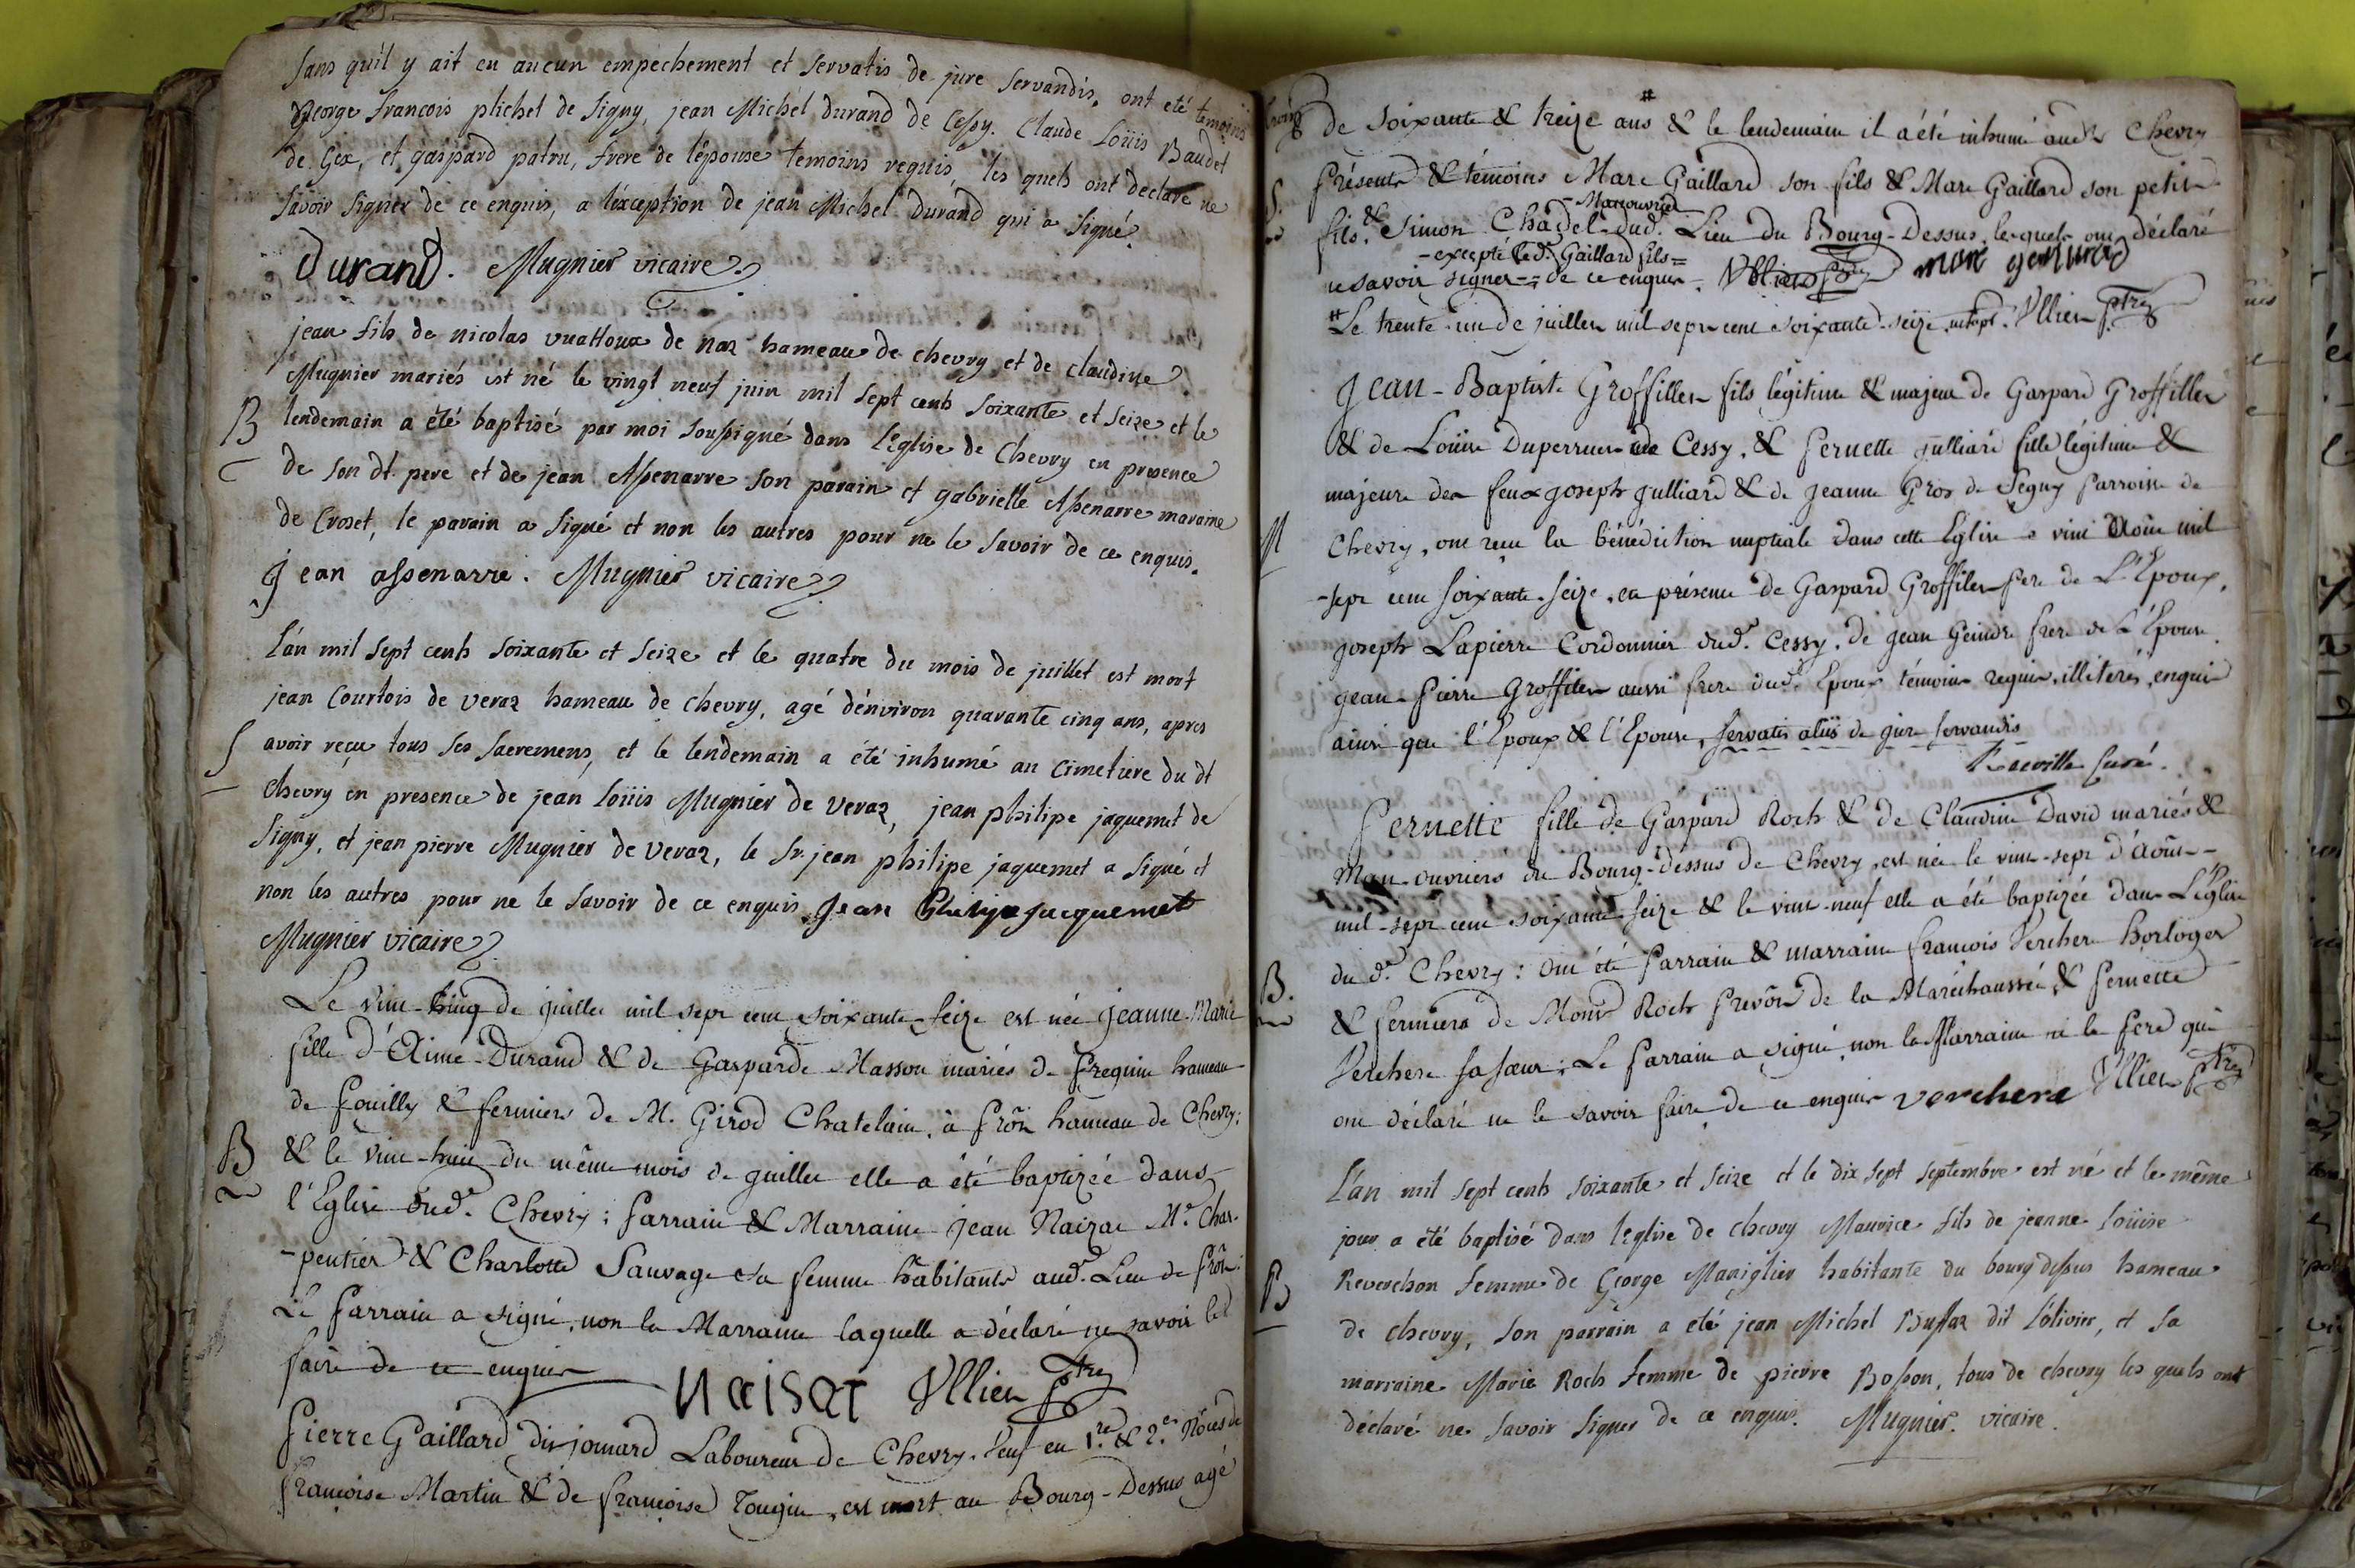 sans qu'il y ait eu aucun empechement et servatis de jure servandis. ont eté temoins
George francois plichel de Signy, jean Michel durand de Cessy. Claude Loüis Baudet
de Gex, et gaspard patru, frere de l'épouse temoins requis, les quels ont declaré ne
savoir signer de ce enquis, a l'éxception de jean Michel Durand qui a signé.
Durand. Mugnier vicaire
jean fils de nicolas vuattoux de naz hameau de chevry et de claudine
Mugnier mariés est né le vingt neuf juin mil sept cents soixante et seize et le
B lendemain a été baptisé par moi soussigné dans l'eglise de Chevry en presence
de son dt. pere et de jean Assenarre son parain et gabrielle Assenarre maraine
de Croset, le parain a signé et non les autres pour ne le savoir de ce enquis.
Jean assenarre. Mugnier vicaire
l'an mil sept cents soixante et seize et le quatre du mois de juillet est mort
jean Courtois de veraz hameau de chevry, agé d'énviron quarante cinq ans, apres
S avoir reçu tous ses sacremens, et le lendemain a été inhumé au cimetiere du dt
chevry en presence de jean Loüis Mugnier de veraz, jean philipe jaquemet de
Signy, et jean pierre Mugnier de veraz, le Sr. jean philipe jaquemet a signé et
non les autres pour ne le savoir de ce enquis. Jean Philipe jacquemet
Mugnier vicaire
Le vint-huit de juillet mil sept cent soixante-seize est née Jeanne-Marie
fille d'Aimé Durand & de Gasparde Masson mariés de Preguin hameau
de Pouilly & fermiers de M. Girod Chatelain, à Prôn hameau de Chevry:
B & le vint-huit du même mois de juillet elle a été baptizée dans
l'Eglise dud. Chevry: Parrain & Marraine jean Naizac Me. Char-
-pentier & Charlotte Sauvage sa femme habitants aud. Lieu de Prôn:
Le Parrain a signé, non la Marraine laquelle a déclaré ne savoir le
faire de ce enquis naisat Ullien Ptre
Pierre Gaillard dit jomard Laboureur de Chevry. veuf en 1.re & 2.es Nôces de
françoise Martin & de françoise Tougin, est mort au Bourg-Dessus agé
de soixante & treize ans # & le lendemain il a été inhumé aud. Chevry
Présents & témoins Marc Gaillard son fils & Marc Gaillard son petit
- Manouvrier
S. fils, & Simon Chadel dud. Lieu du Bourg-Dessus, lesquels ont déclaré
- excepté led. Gaillard fils =
ne savoir signer - de ce enquis. Ullien Ptre marc
# Le trente-un de juillet mil sept cent soixante-seize. Ullien Ptre
Jean-Baptiste Groffiller fils légitime & majeur de Gaspard Groffiller
& de Loüise Duperrier de Cessy, & Pernette Julliard fille légitime &
majeure de feux Joseph Julliard & de Jeanne Gros de Segny Parroisse de
M Chevry, ont recu la bénédiction nuptiale dans cette Eglise le vint Aoûst mil
-sept cent soixante-seize, en présence de Gaspard Groffiller Pere de L'Epoux,
Joseph Lapierre Cordonnier dud. Cessy, de Jean Geindre frere de L'Epouse,
Jean-Pierre Groffiller aussi frere dud. Epoux témoins requis, illiterés, enquis
ainsi que l'Epoux & l'Epouse, servatis aliis de jure servandis
Curé.
Pernette fille de Gaspard Roch & de Claudine David mariés &
Man-ouvriers du Bourg-dessus de Chevry, est née le vint-sept d'Aoûst
mil-sept cent soixante-seize & le vint-neuf elle a été baptizée dans L'Eglise
du d. Chevry: Ont été Parrain & marraine François Verchere horloger
B. & Fermiers de Monsr. Roch Prevôt de la Maréchaussée, & Pernette
Verchere sa sœur; Le Parrain a signé, non la Marraine ni le Pere qui
ont déclaré ne le savoir faire de ce enquis verchere Ullien Ptre
L'an mil sept cents soixante et seize et le dix sept septembre est né et le même
jour a été baptisé dans l'eglise de chevry Maurice fils de jeanne loüise
B Reverchon femme de George Maniglier habitante du bourg dessus hameau
de chevry, son parrain a été jean Michel Bussaz dit l'olivier, et sa
marraine Marie Roch femme de pierre Bosson, tous de chevry les quels ont
déclaré ne savoir signer de ce enquis. Mugnier vicaire.